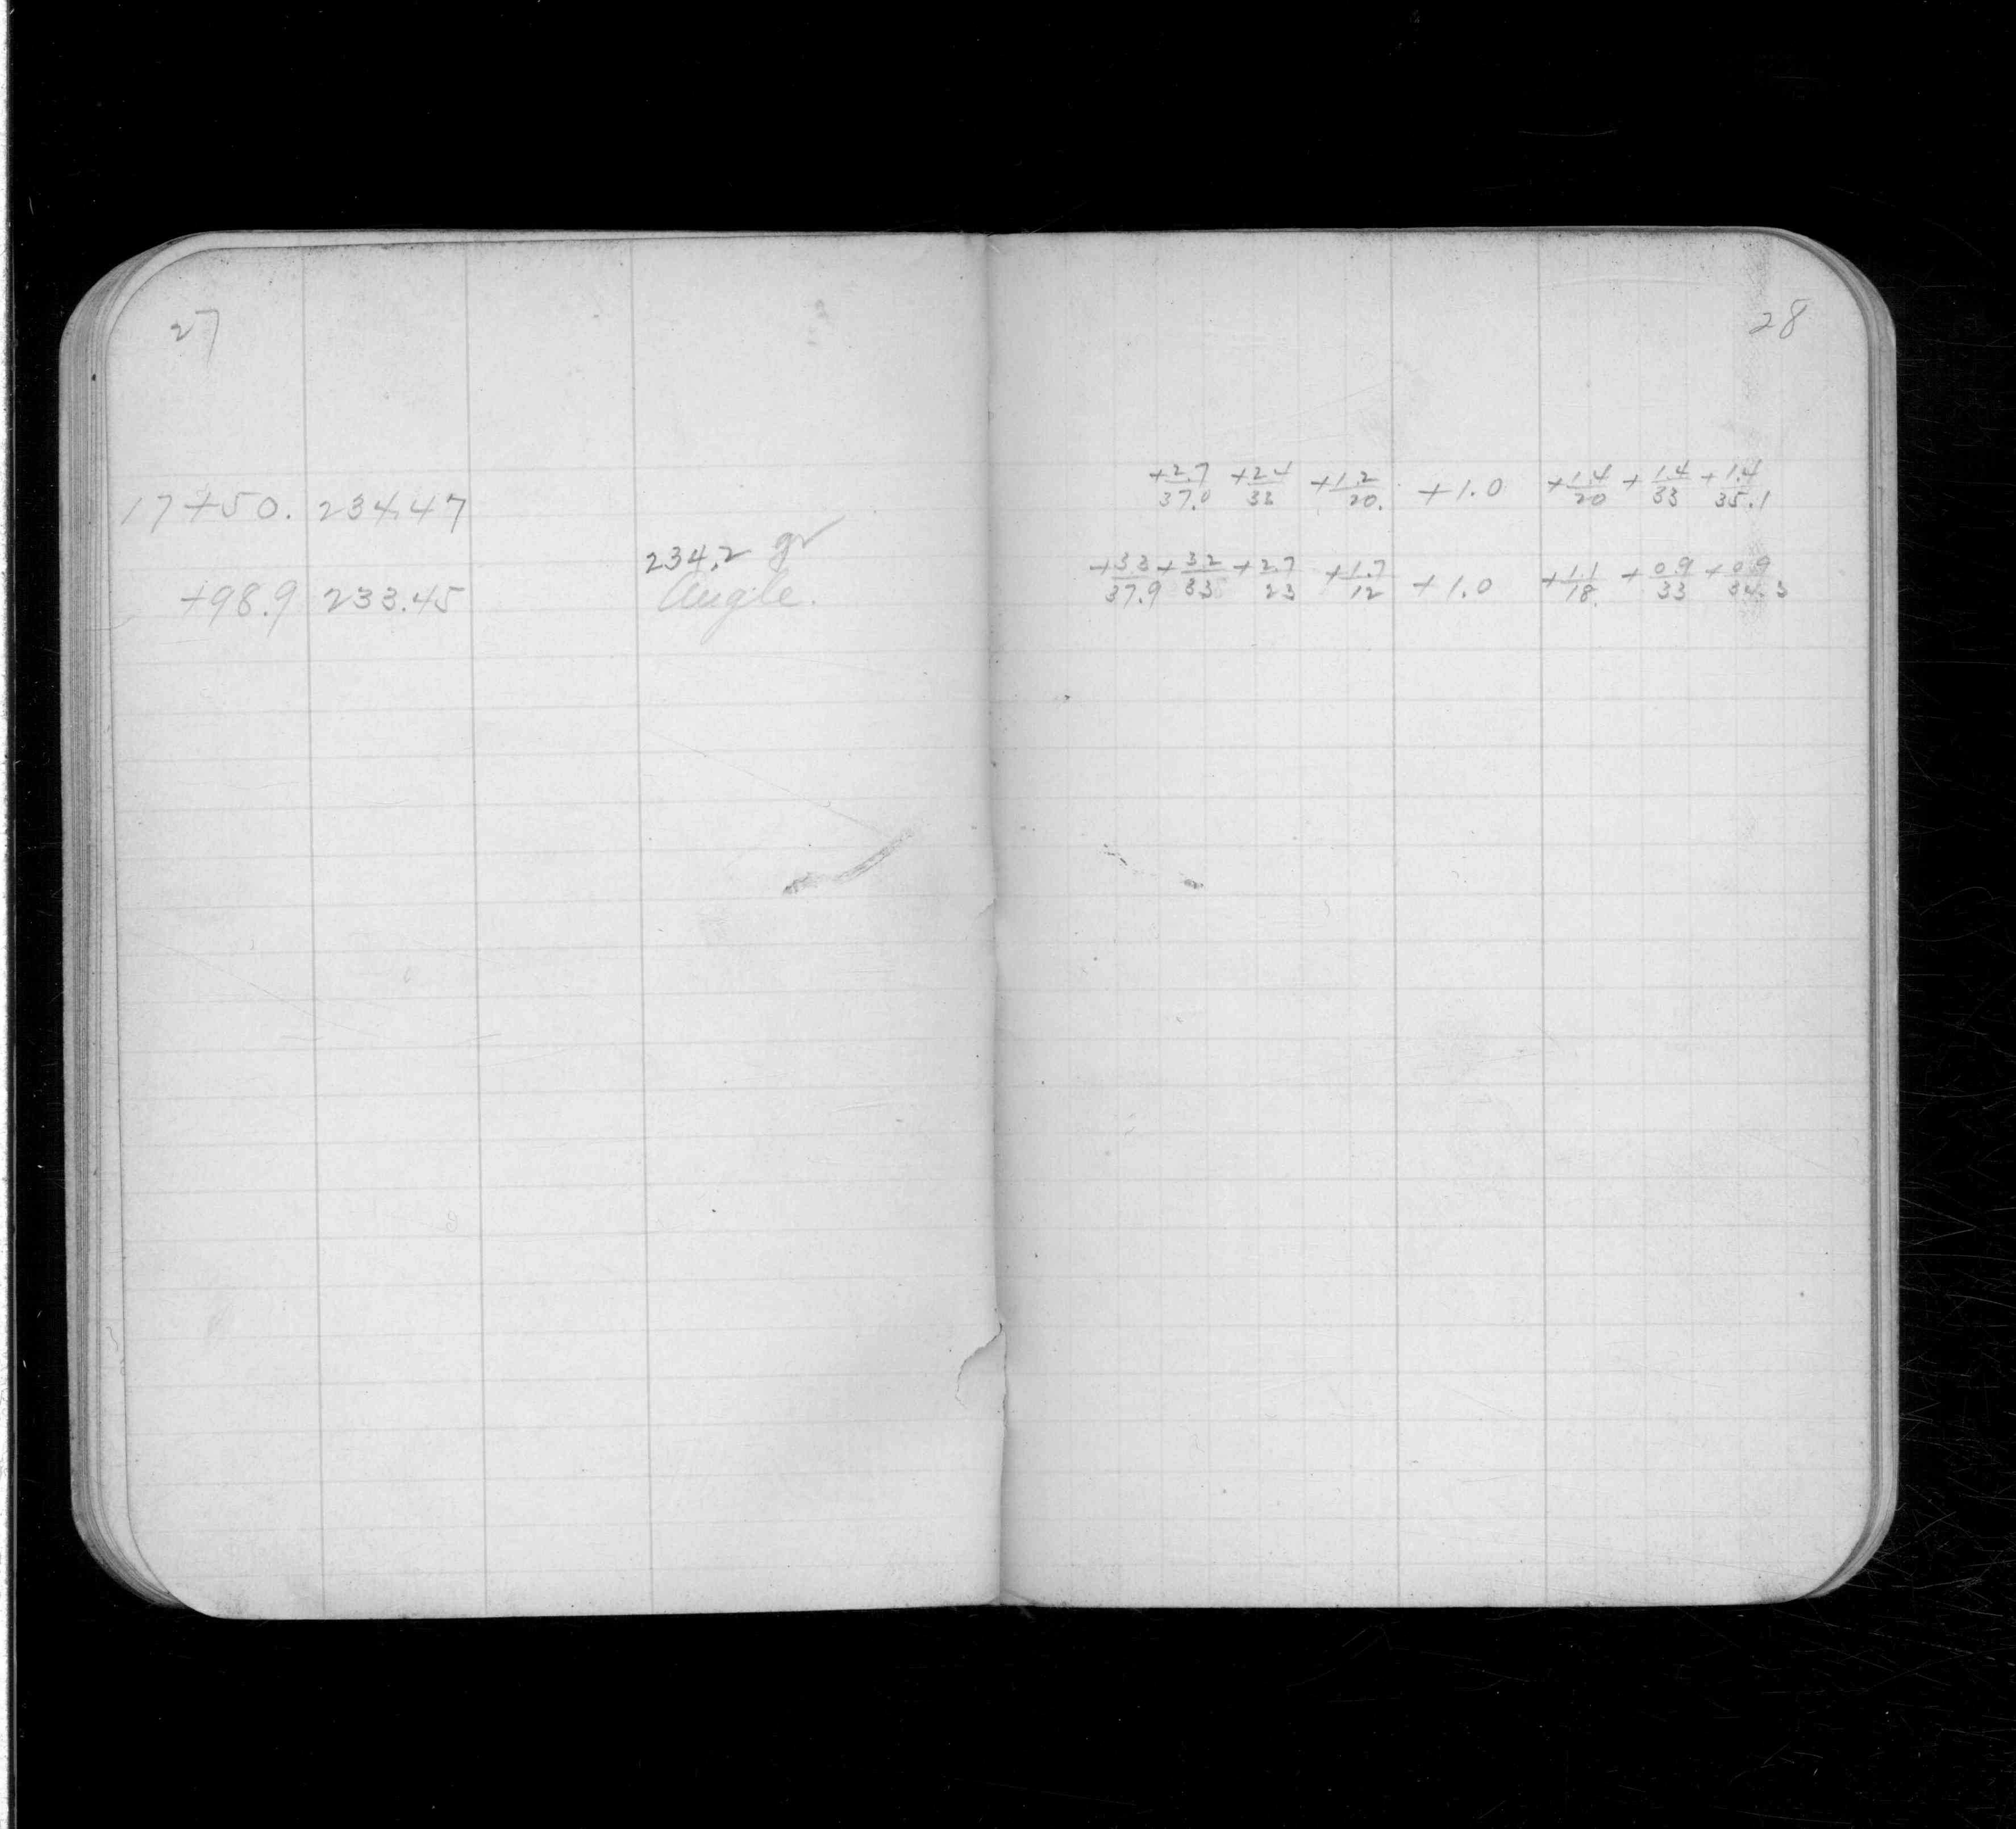 27
17+50. 234.47
234.2 gr
+98.9 233.45 Angle.
28
+2.7/37.0 +2.4/33 +1.2/20. +1.0 +1.4/20 +1.4/33 +1.4/35.1
+3.3/37.9 +3.2/33 +2.7/23 +1.7/12 +1.0 +1.1/18. +0.9/33 +0.9/34.3